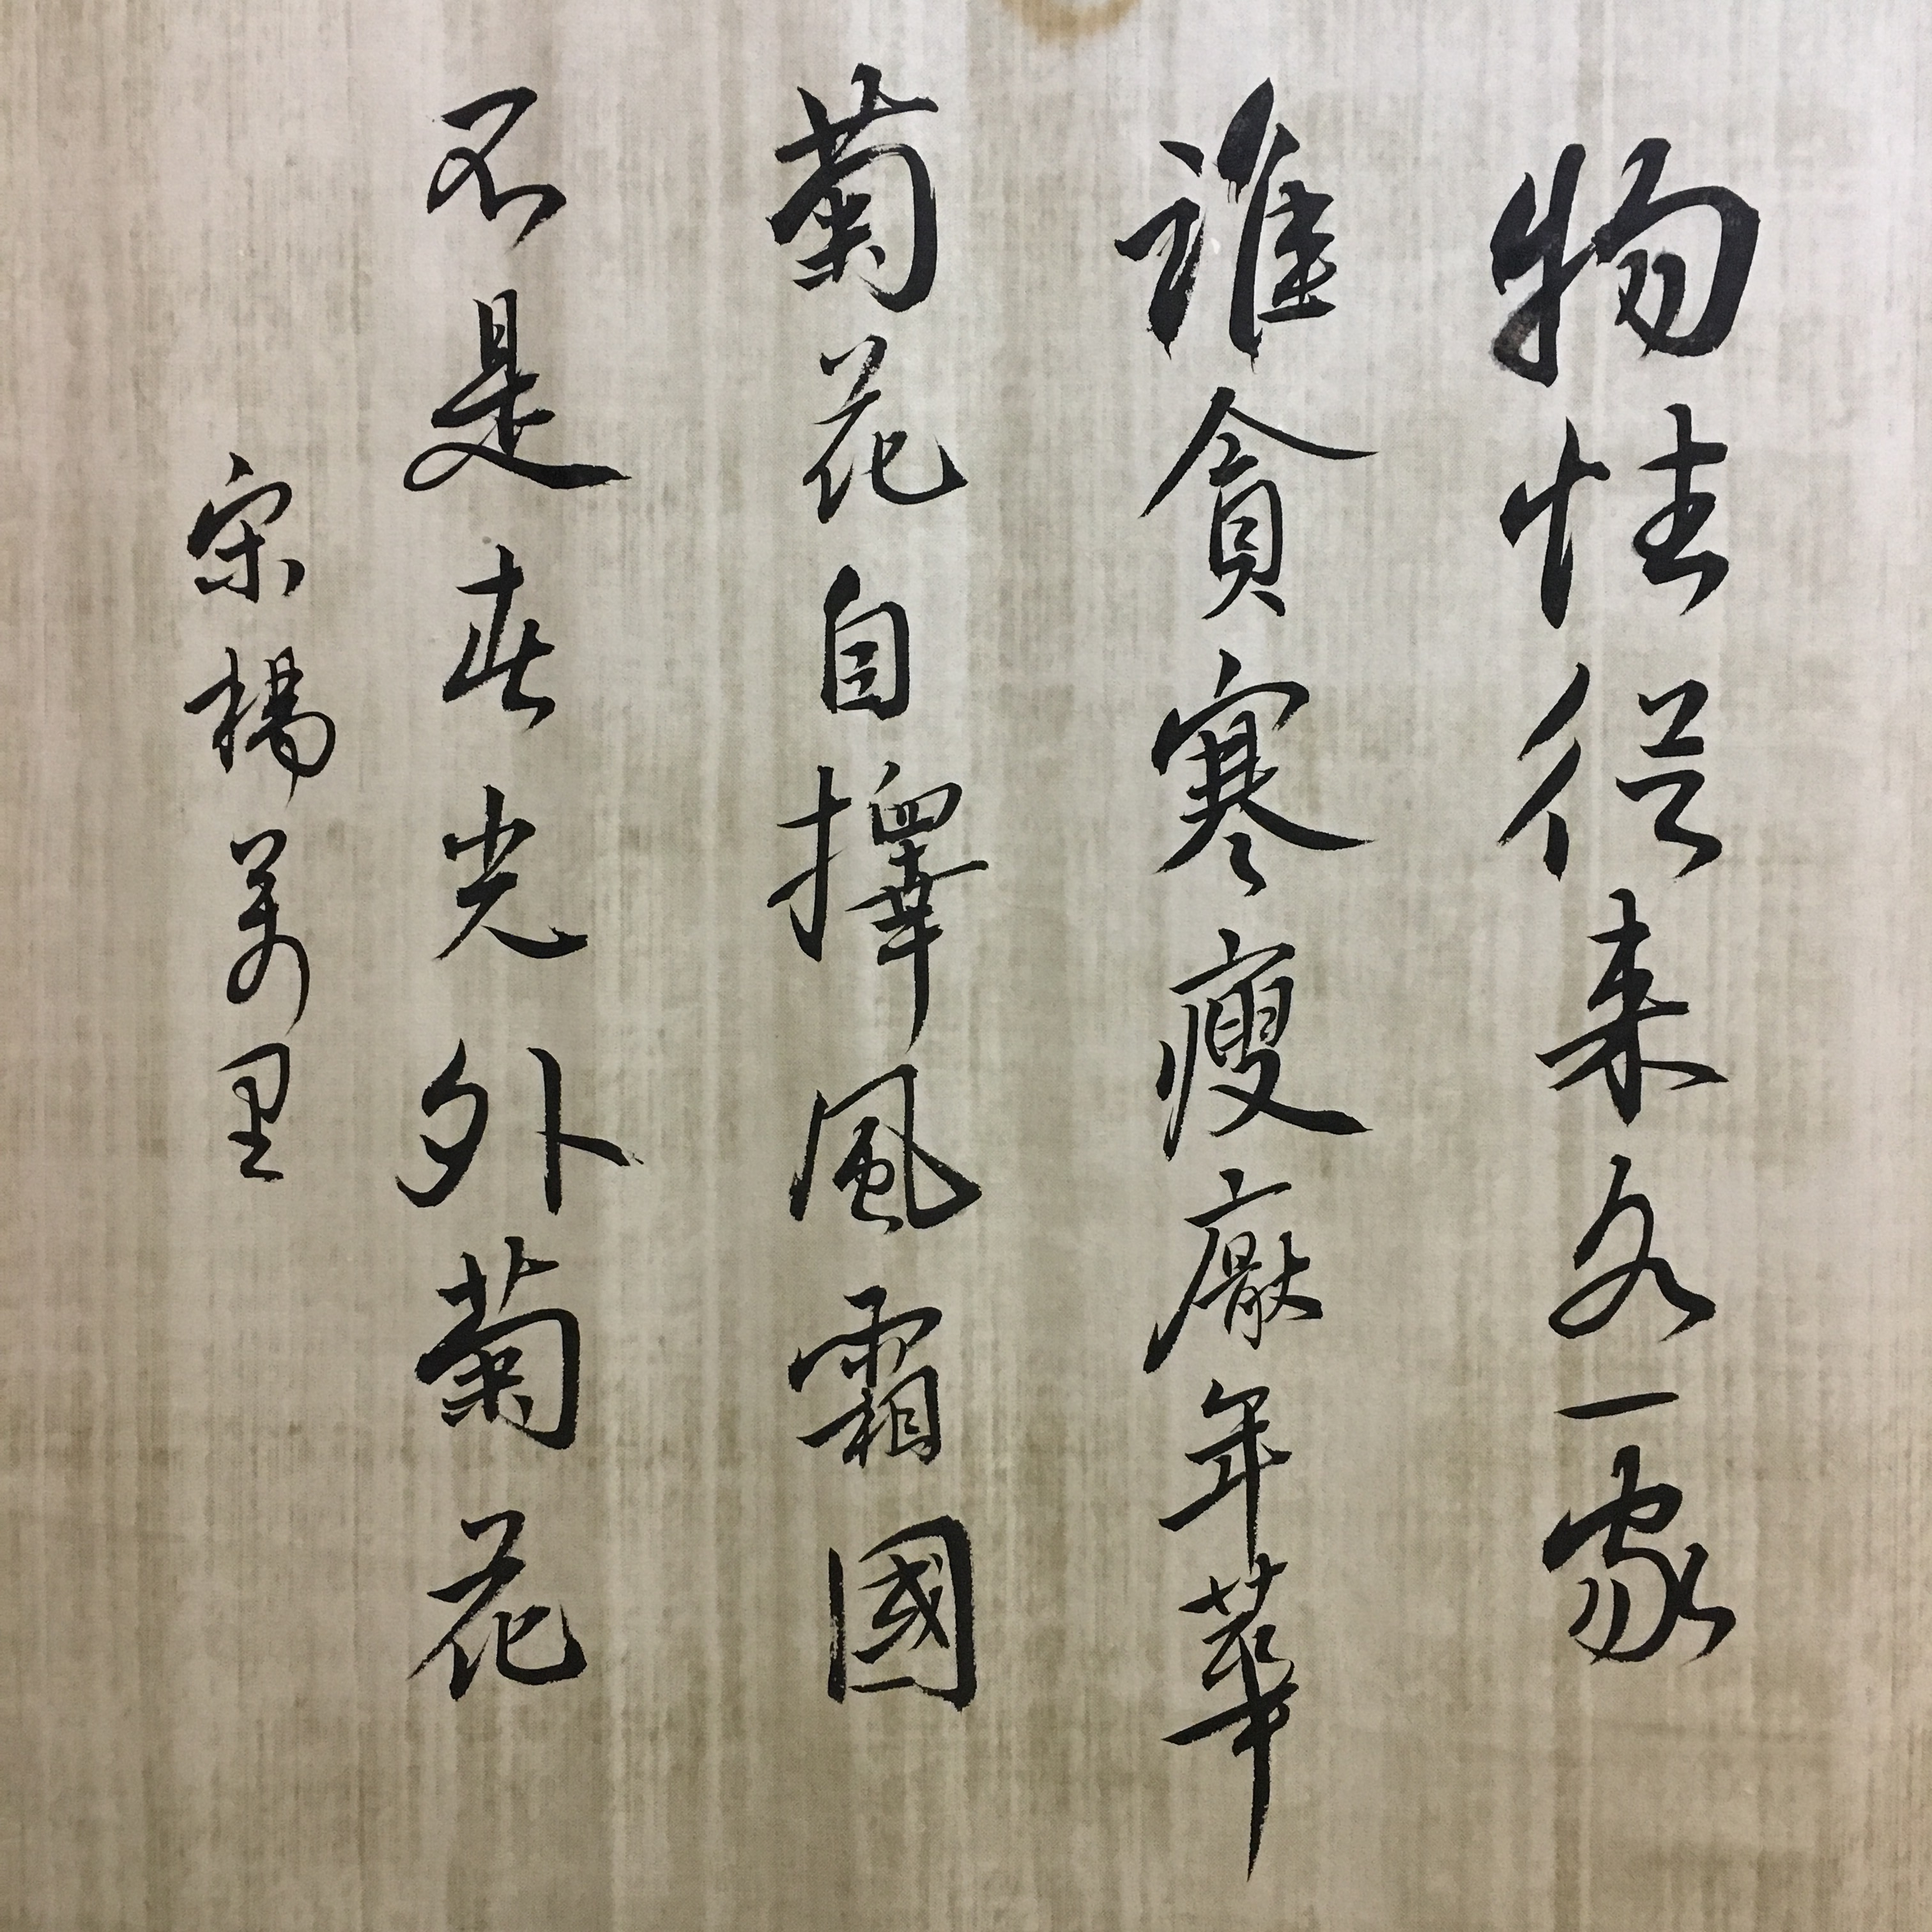 物性從来各一家
誰貪寒瘦厭年華
菊花自擇風霜國
不是春光外菊花
宋楊萬里